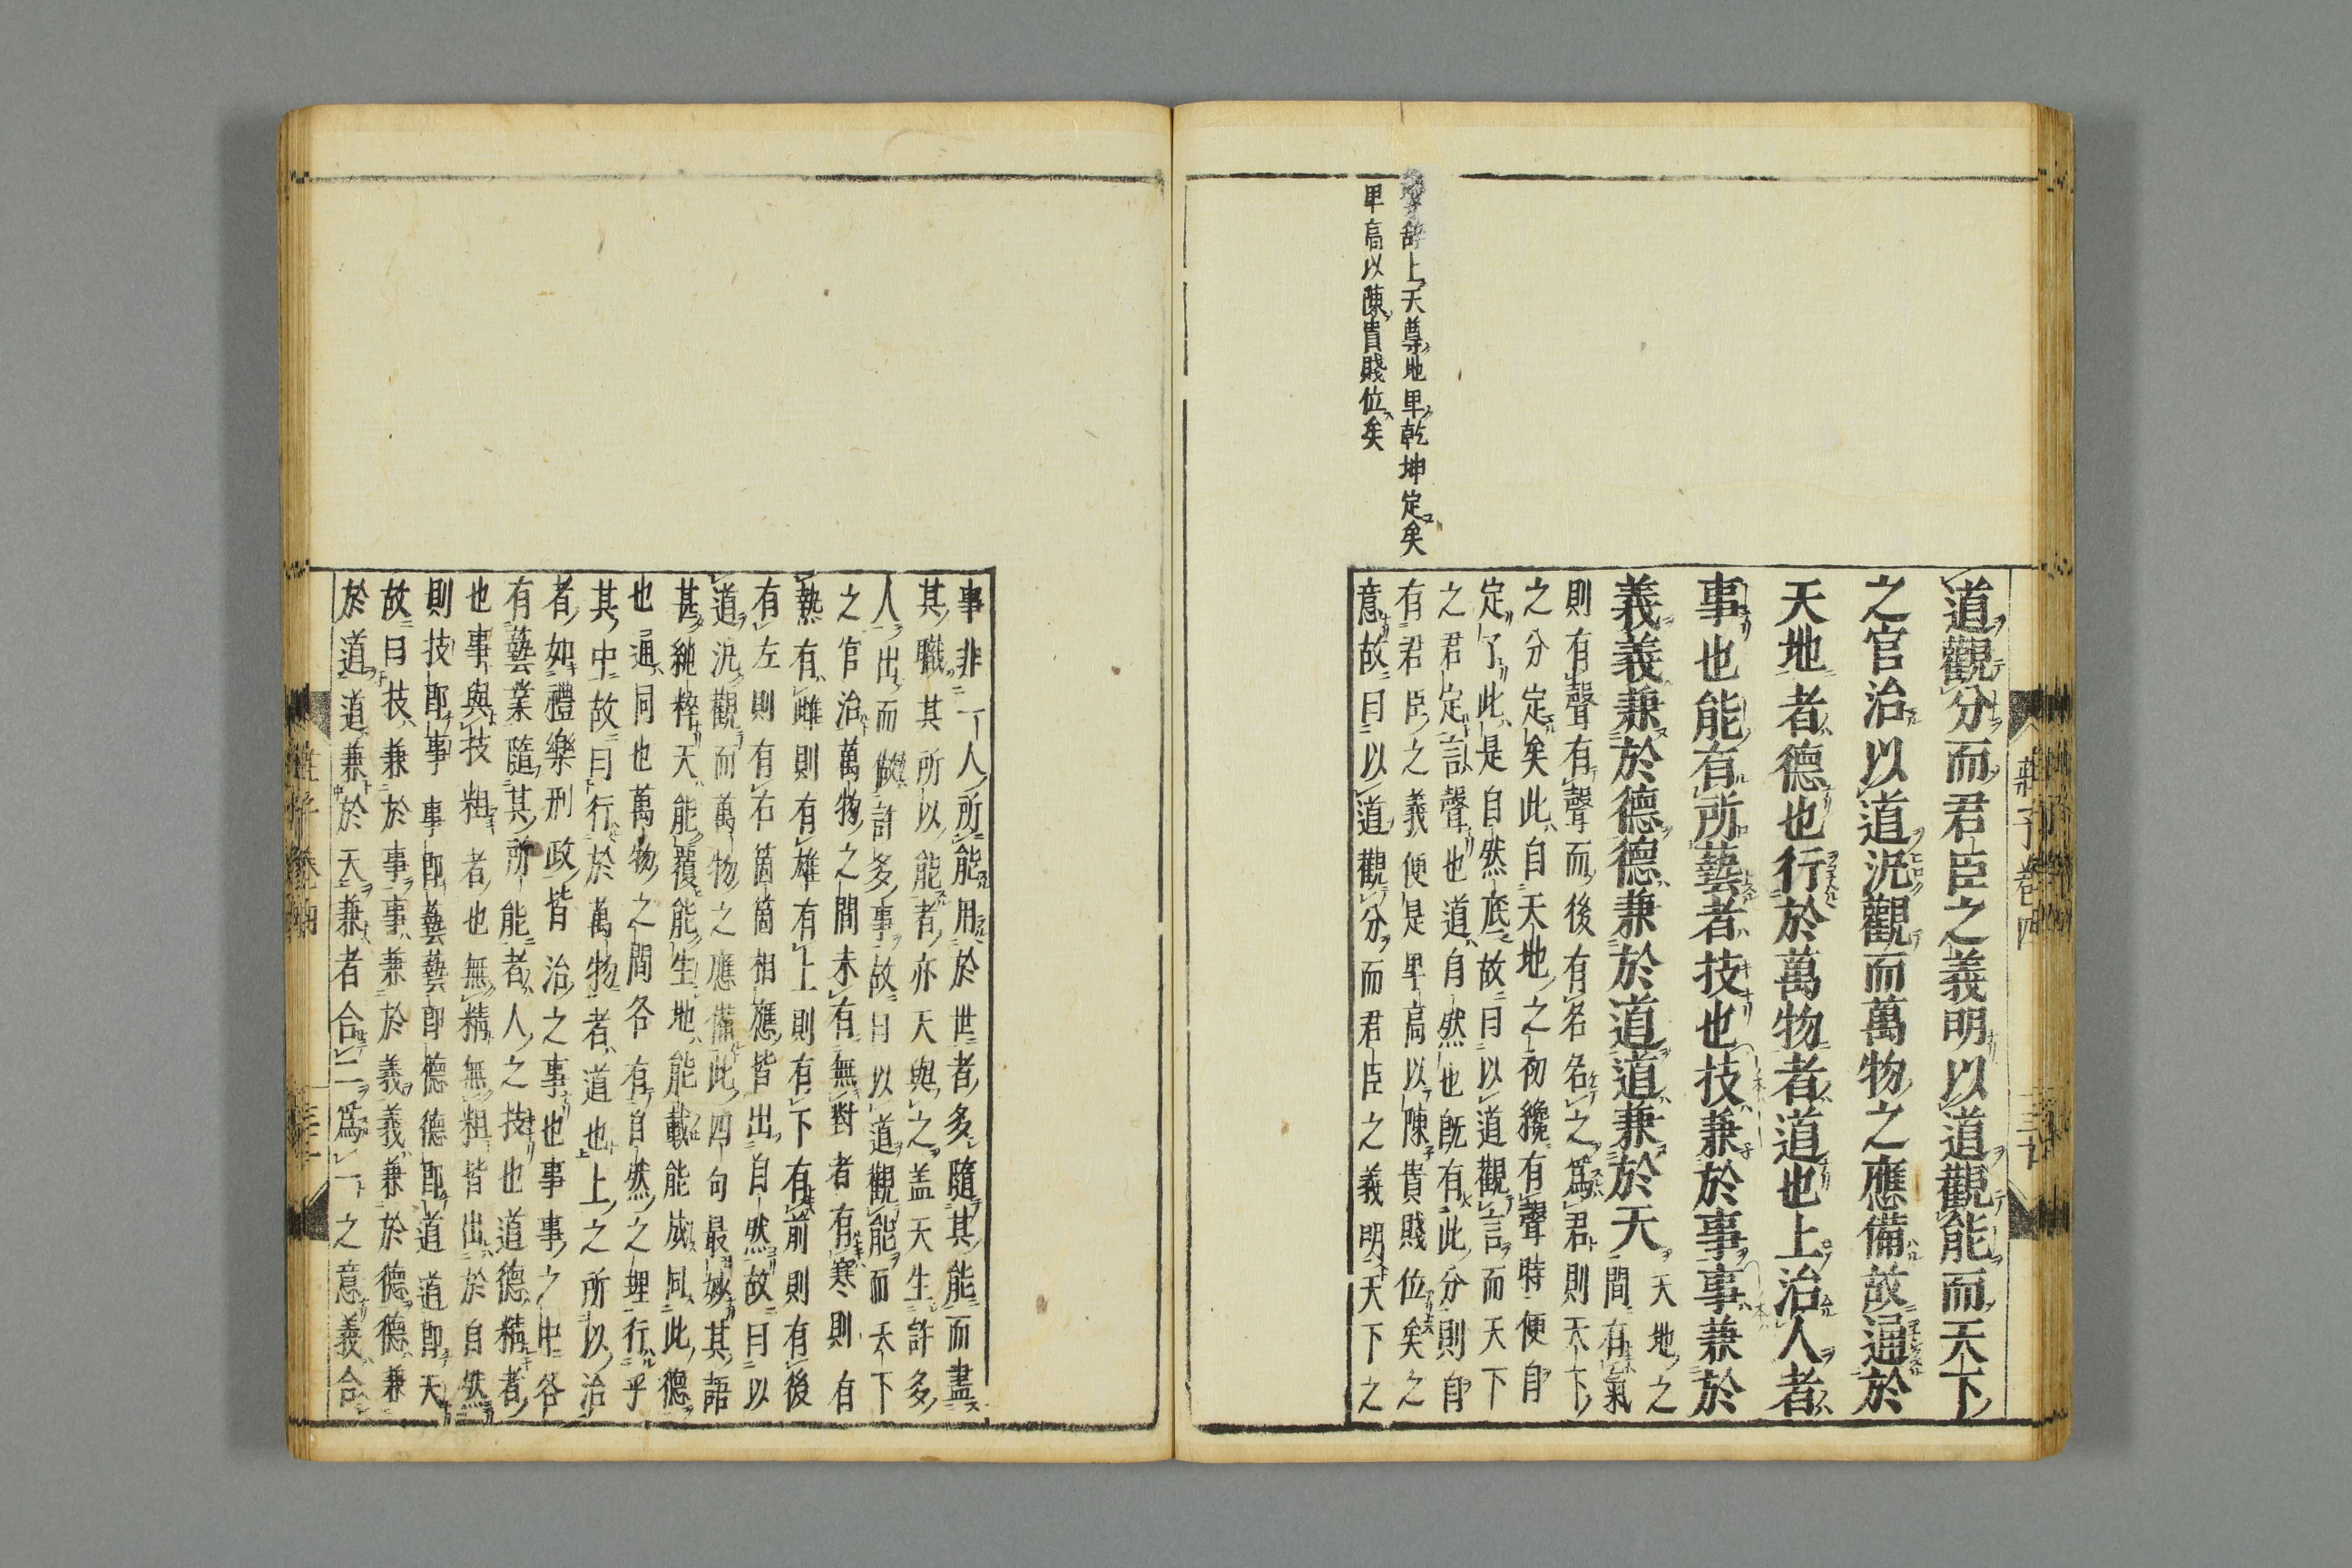 辭上天尊地卑乾坤定矣
卑高以陳貴賤位矣
道觀分而君臣之義明以道觀能而天下
之官治以道汎觀而萬物之應備故通於
天地者德也行於萬物者道也上治人者
事也能有所藝者技也技兼於事事兼於
義義兼於德德兼於道道兼於天
天地之
間有氣
則有聲有聲而後有名名之為君則天下
之分定矣此自天地之初纔有聲時便自
定了此是自然底故曰以道觀言而天下
之君定言聲也道自然也既有此分則自
有君臣之義便是卑高以陳貴賤位矣之
意故曰以道觀分而君臣之義明天下之
莊子卷四
事非一人所能用於世者多隨其能而盡
其職其所以能者亦天與之盖天生許多
人出而做許多事故曰以道觀能而天下
之官治萬物之間未有無對者有寒則有
熱有雌則有雄有上則有下有前則有後
有左則有右箇箇相應皆出自然故曰以
道汎觀而萬物之應備此四句最妙其語
甚純粹天能覆能生地能載能成同此德
也通同也萬物之間各有自然之理行乎
其中故曰行於萬物者道也上之所以治
者如禮樂刑政皆治之事也事事之中各
有藝業隨其所能者人之技也道德精者
也事與技粗者也無精無粗皆出於自然
則技即事事即藝藝即德德即道道即天
故曰技兼於事事兼於義義兼於德德兼
於道道兼於天兼者合二為一之意義合